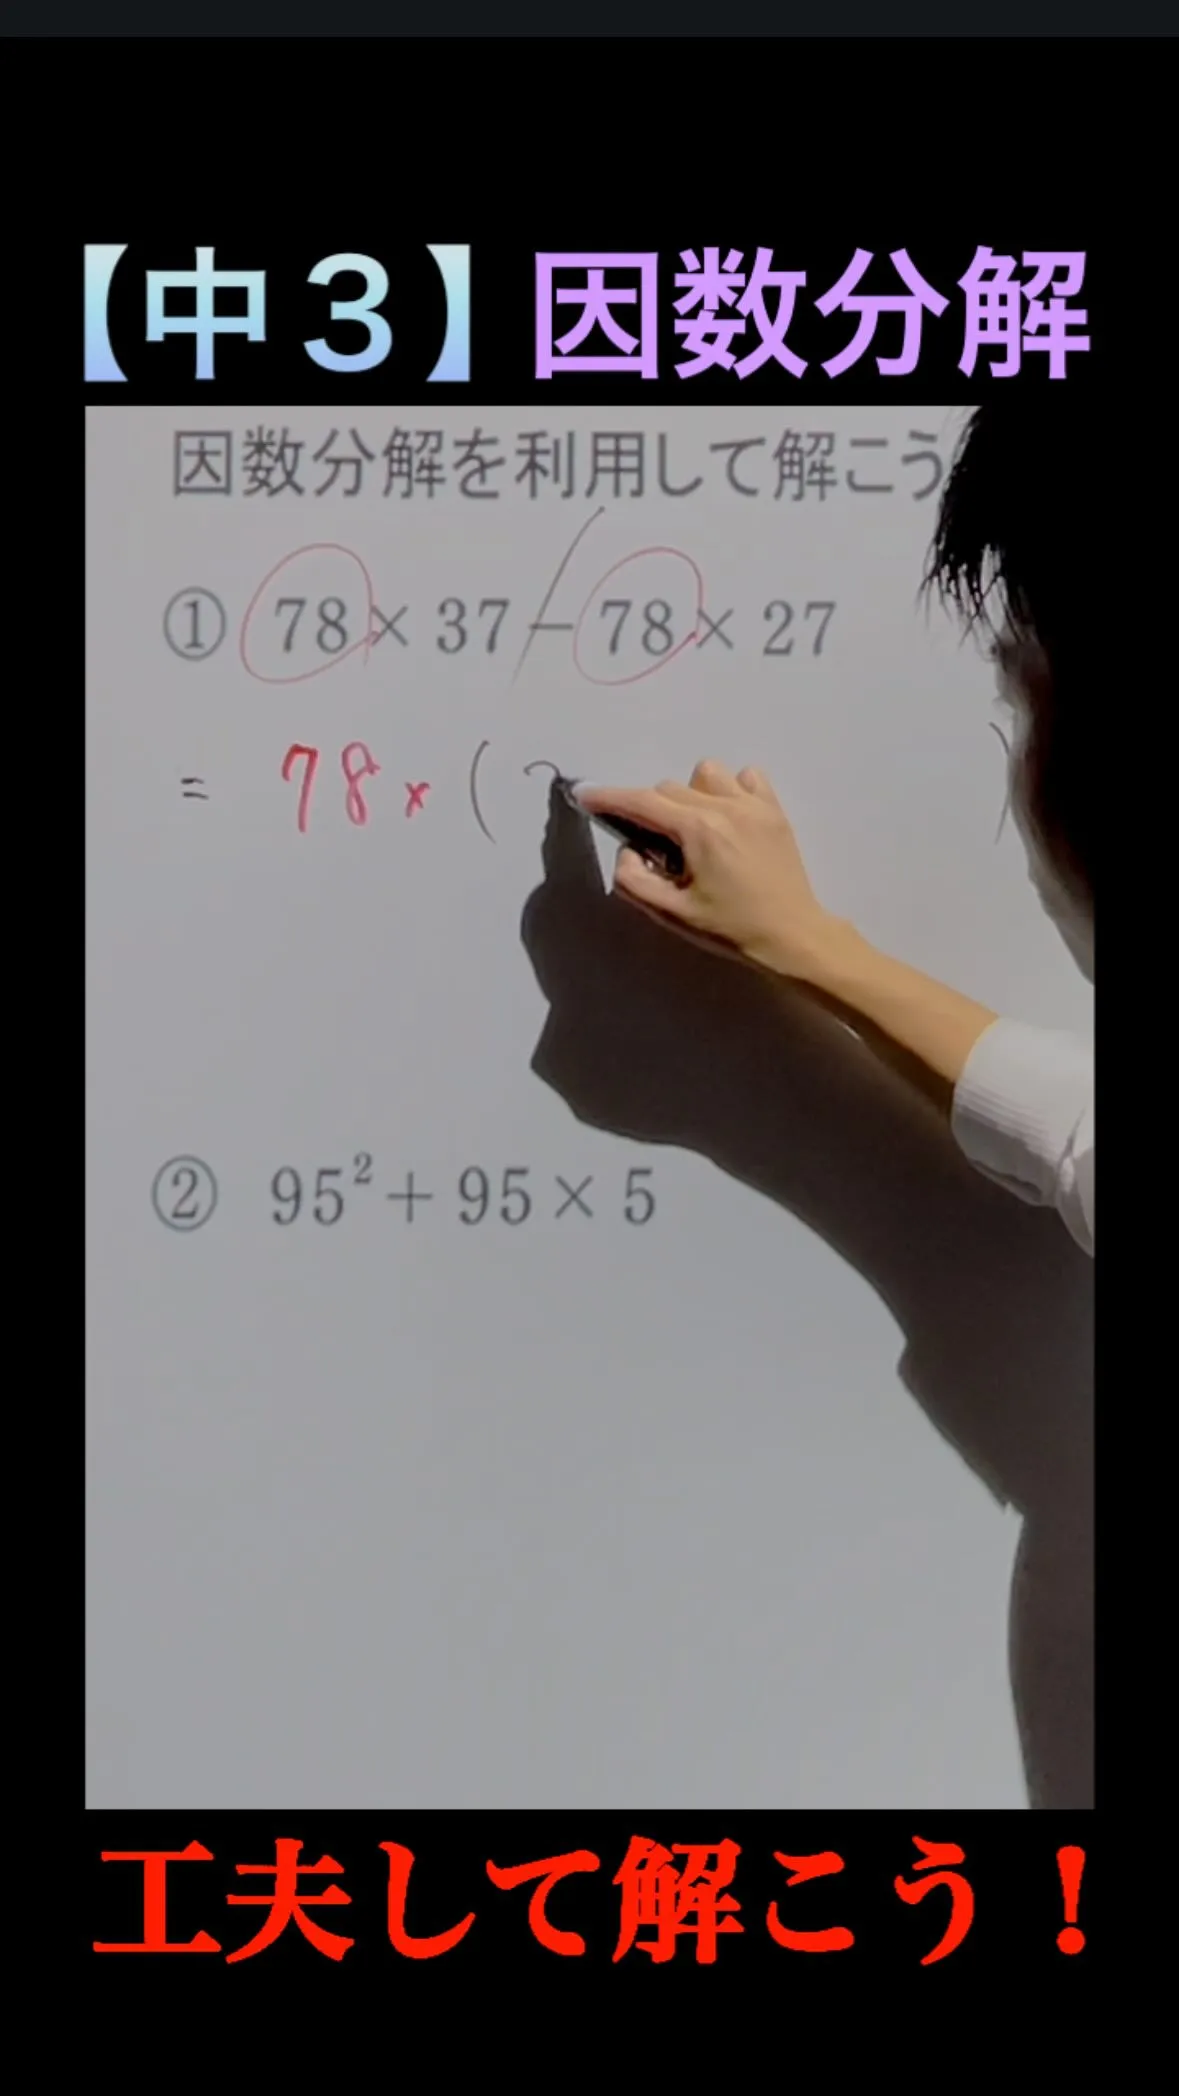 【中3】因数分解
因数分解を利用して解こう
① 78×37－78×27
= 78×(
)
② 95²＋95×5
工夫して解こう！